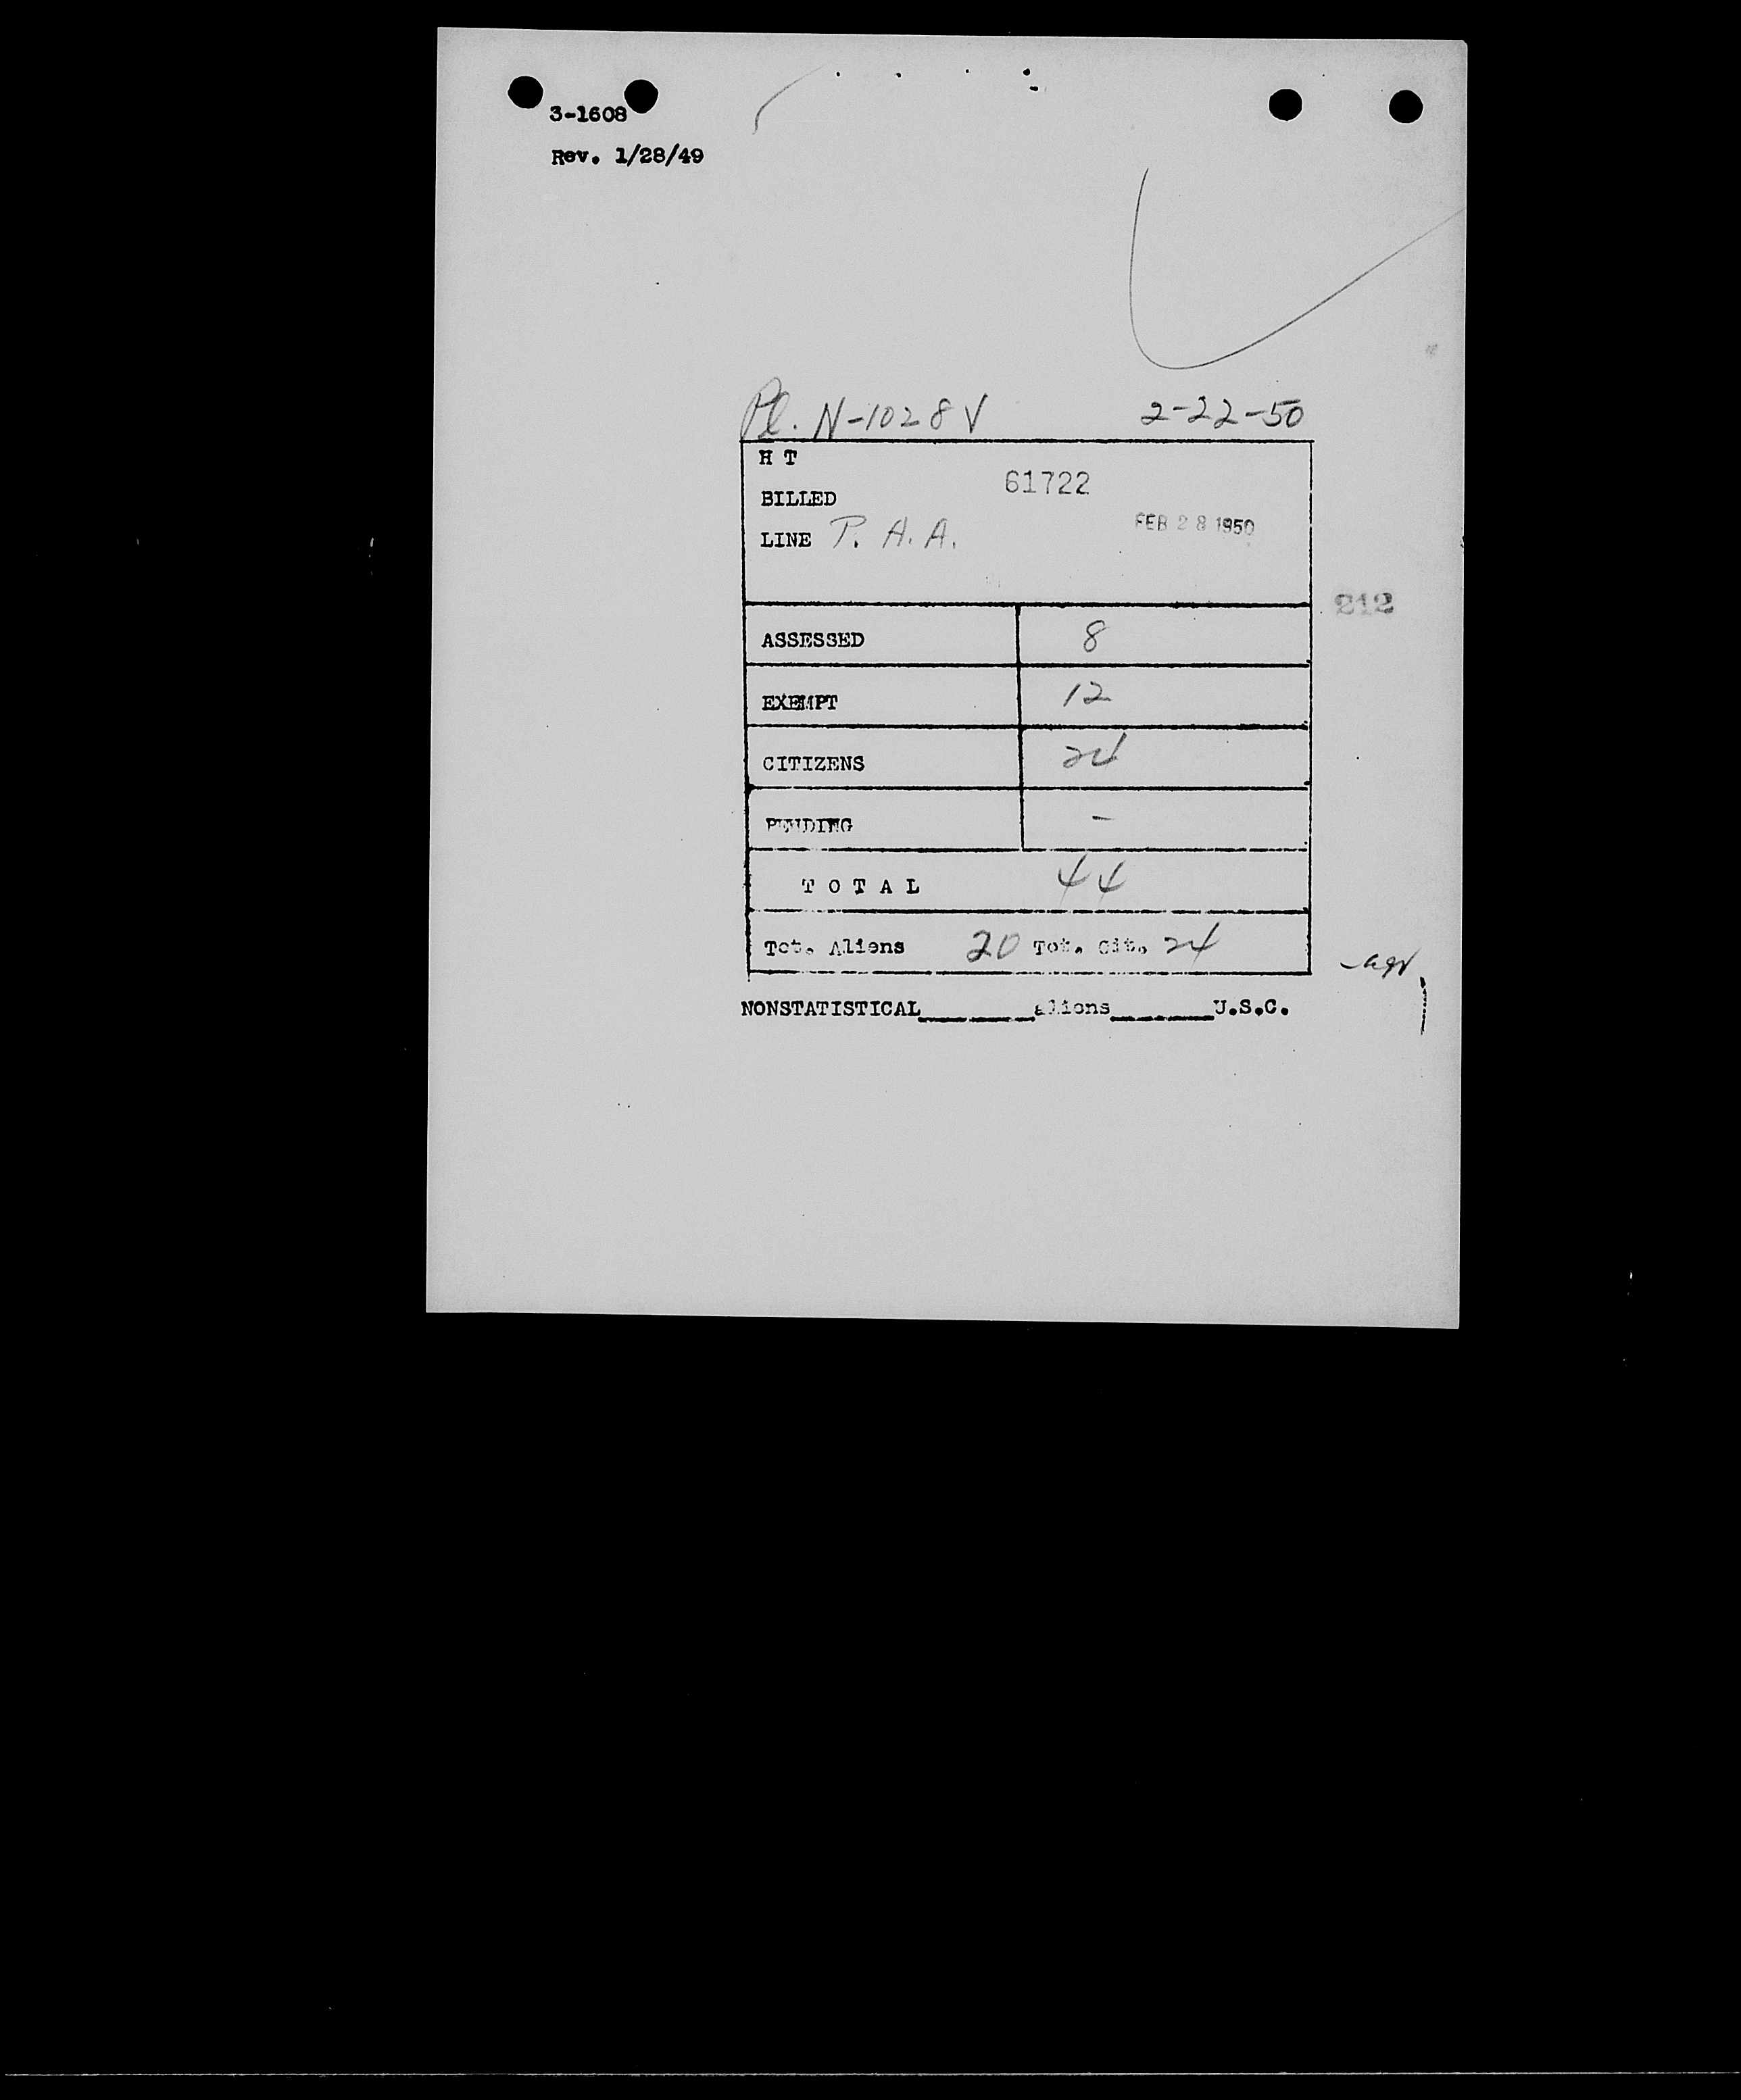 3-1608
Rev. 1/28/49
Pl. N-1028V 2-22-50
H T
61722
BILLED
FEB 28 1950
LINE P. A. A.
212
ASSESSED 8
EXEMPT 12
CITIZENS 24
PENDING -
T O T A L 44
Tot. Aliens 20 Tot. Cit. 24
NONSTATISTICAL______aliens______U.S.C.